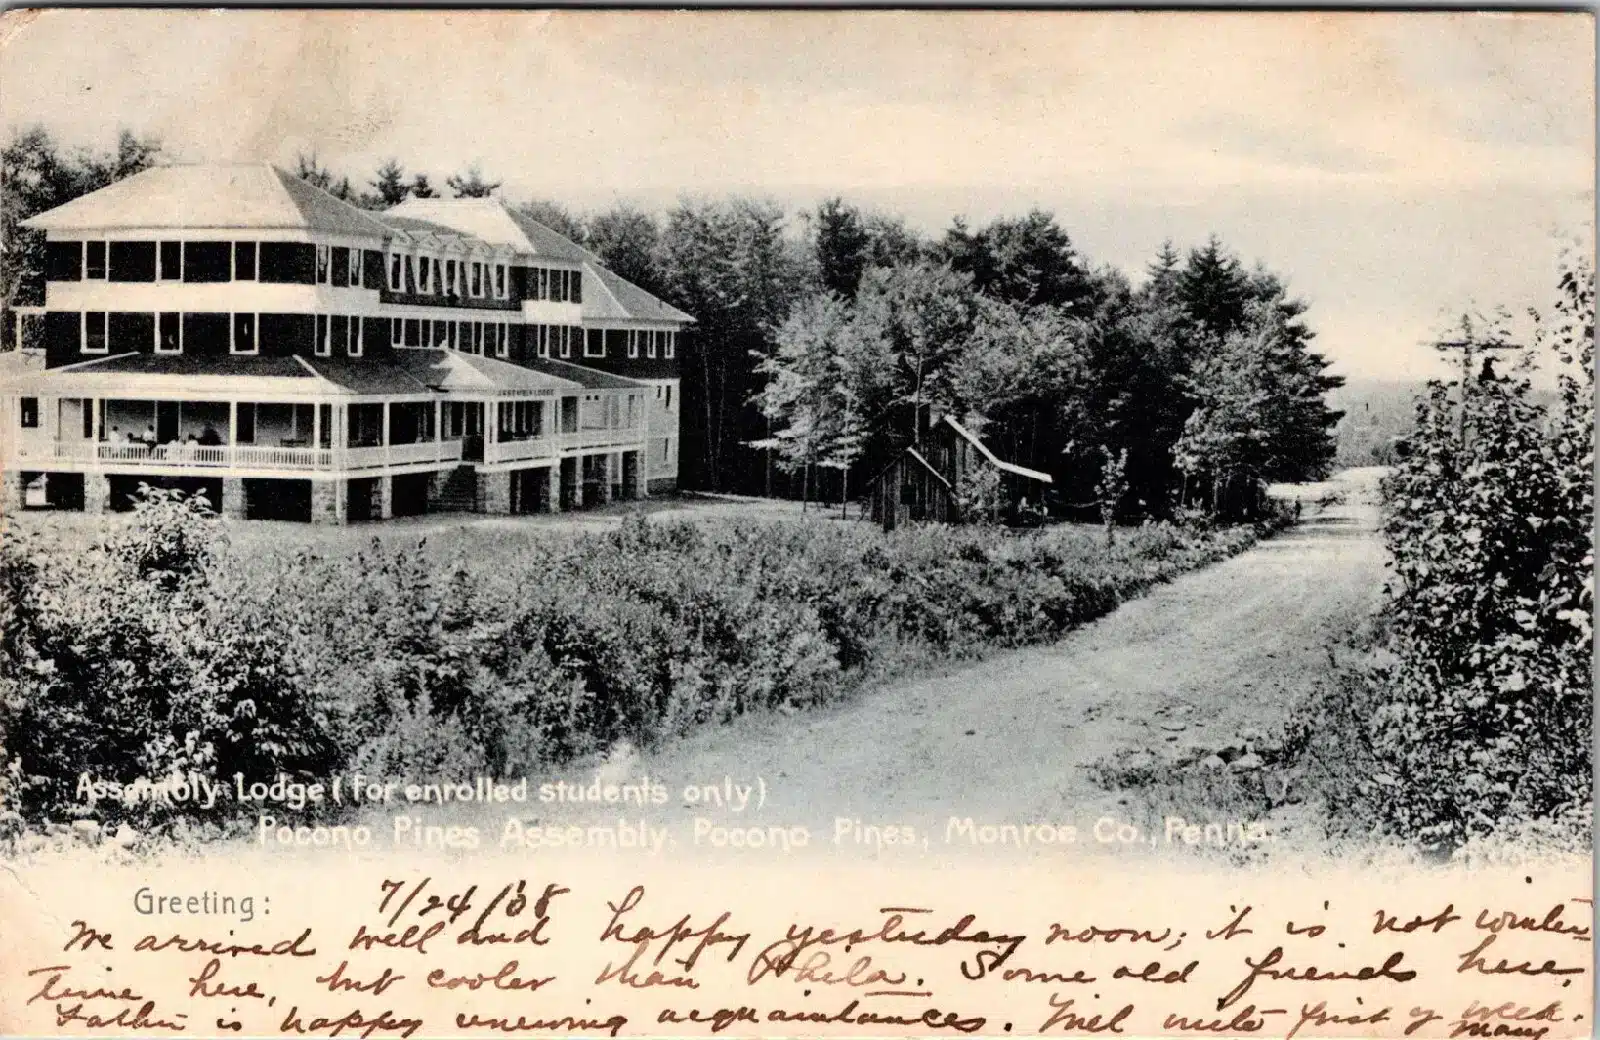 ASSEMBLY LODGE
Assembly Lodge (for enrolled students only)
Pocono Pines Assembly, Pocono Pines, Monroe Co., Penna.
Greeting: 7/24/08
We arrived well and happy yesterday noon; it is not winter
time here, but cooler than Phila. Some old friends here.
Father is happy renewing acquaintances. Will write first of week.
Mary